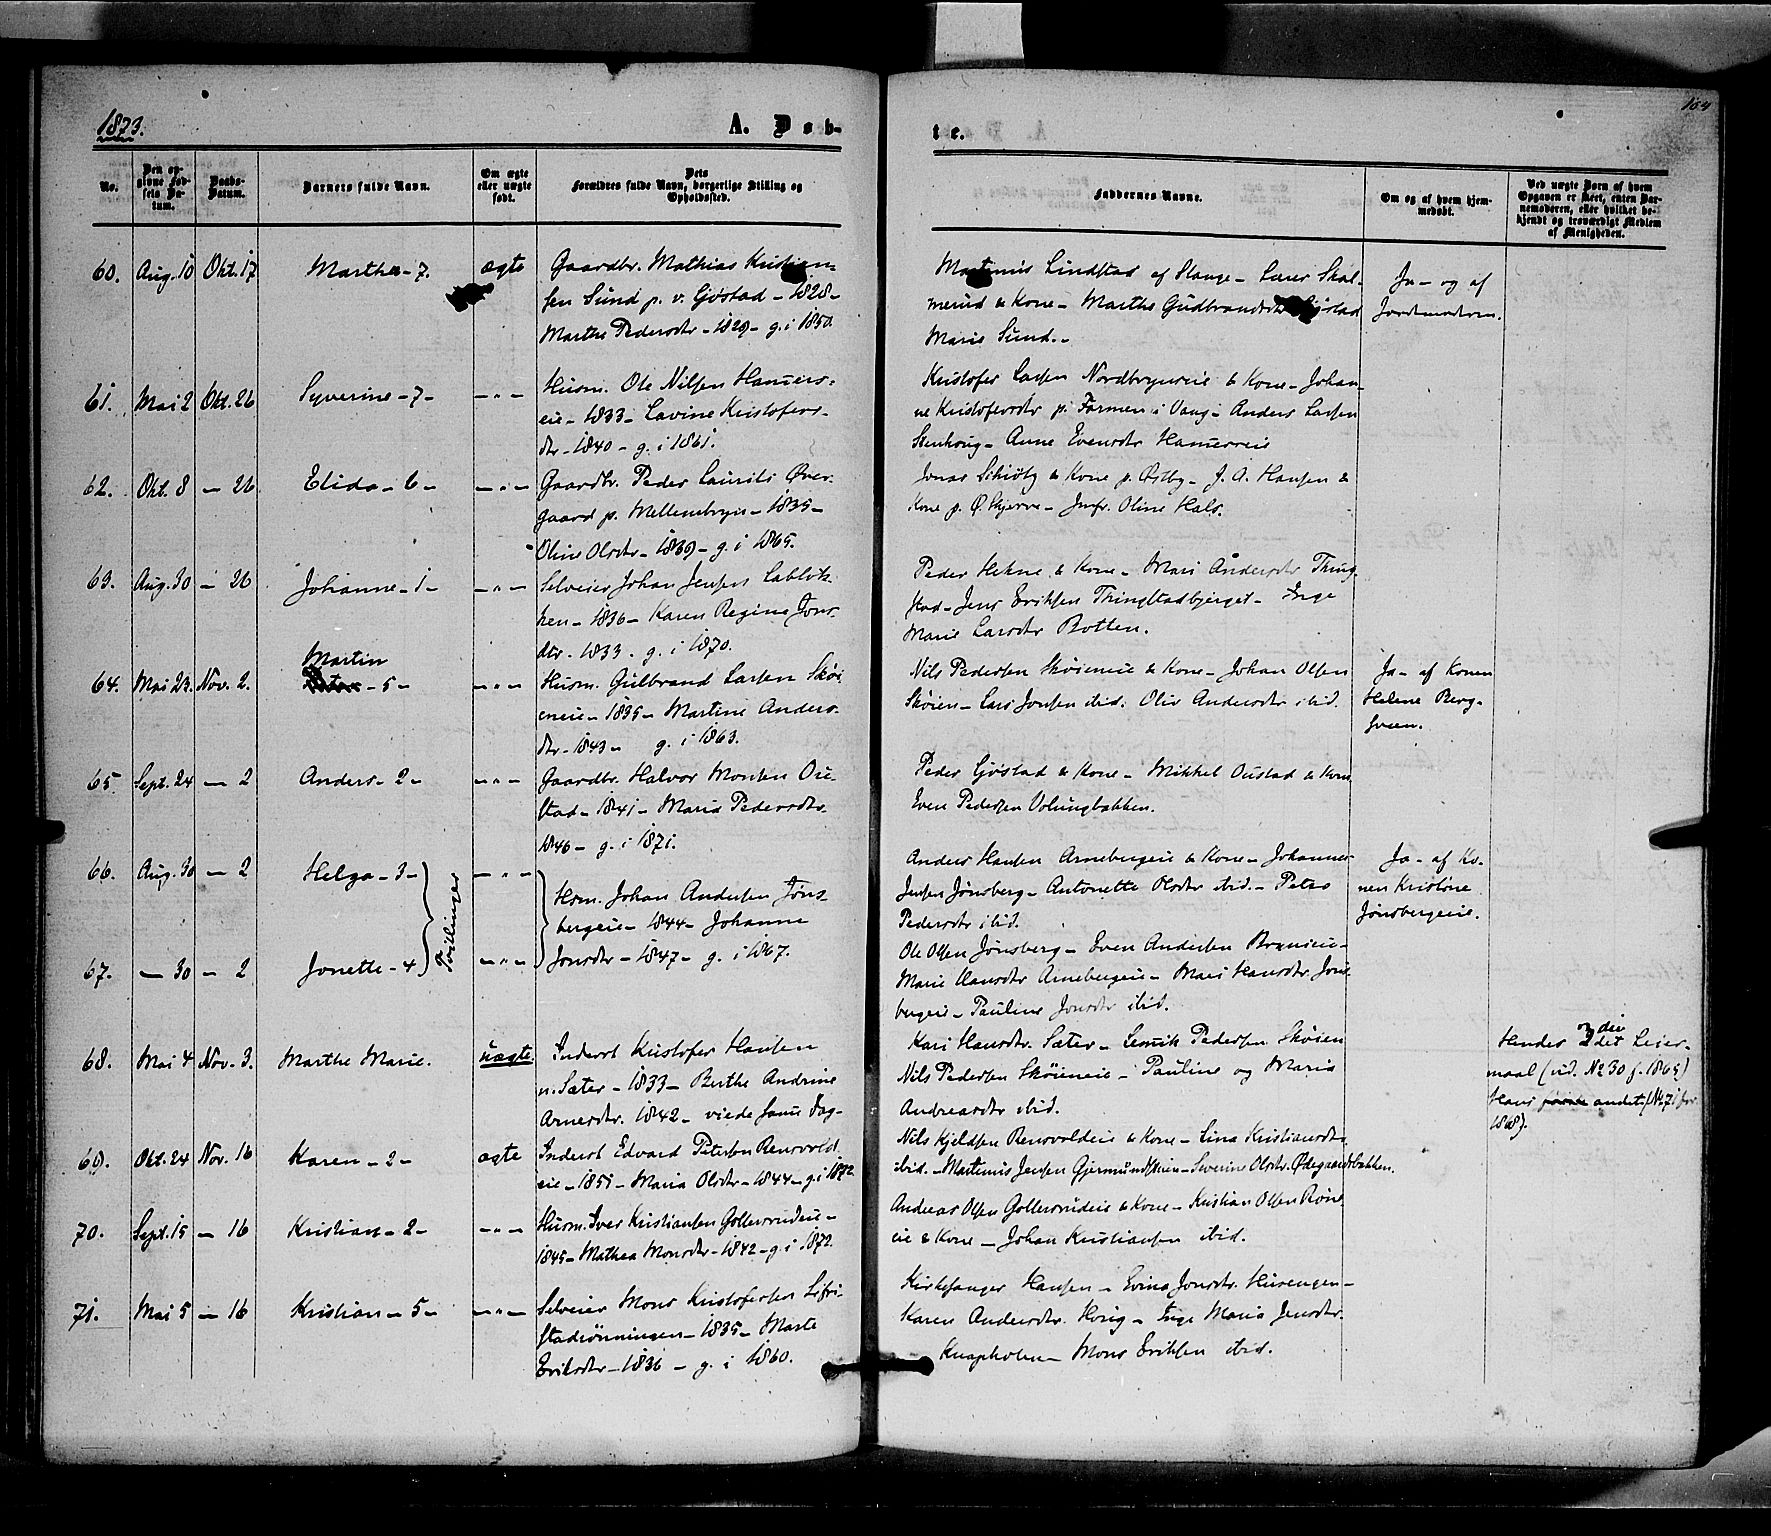 1873.
A. Døb-
te.
164
No.
Den op-
givne Fød-
sels Da-
tum.
Daabs-
Datum.
Barnets fulde Navn.
Om ægte
eller uægte
født.
Dets
Forældres fulde Navn, borgerlige Stilling og
Opholdssted.
Faddernes Navne.
Om og af hvem hjem-
medøbt.
Ved uægte Børn af hvem
Opgaven er skeet, enten Bar-
nemoderen, eller hvilket be-
kjendt og troværdigt Medlem
af Menigheden.
60. Aug. 10 Okt. 17 Marthe - 7. ægte
Gaardbr. Mathias Kristian-
sen Sund p. v. Gjøstad - 1828 -
Marthe Pedersdtr - 1829 - g. i 1850.
Martinus Lindstad af Stange - Lærer Skal-
merud & Kone - Marthe Gudbrandsdtr Gjøstad
Marie Sund. -
Ja - og af
Jordmoderen.
61. Mai 2 Okt. 26 Syverine - 7 - - " -
Husm. Ole Nilsen Hamers-
eie - 1833 - Lavine Kristofers-
dtr - 1840 - g. i 1861.
Kristofer Larsen Nordbryneie & Kone - Johan-
ne Kristofersdtr p. Farmen i Vang - Anders Larsen
Stenhoug - Anne Evensdtr Hamerseie
62. Okt. 8 - 26 Elida - 6 - - " -
Gaardbr. Peder Laurits Øver-
gaard p. Mellembryn - 1835 -
Oline Olsdtr - 1839 - g. i 1865.
Jonas Schiøtz & Kone p. Østby - J. A. Hansen &
Kone p. Ø. Skjerve - Jmfr. Oline Hals.
63. Aug. 30 - 26 Johanne - 1 - - " -
Selveier Johan Jensen Lablok-
ken - 1836 - Karen Regine Jons-
dtr. 1833. g. i 1870.
Peder Hekne & Kone - Mari Andersdtr Thing-
stad - Jens Eriksen Thingstadbjerget - Inge
Marie Larsdtr Botten.
64. Mai 23. Nov. 2. Martin - 5 - - " -
Husm. Gulbrand Larsen Skøi-
eneie - 1835 - Martine Anders-
dtr - 1843 - g. i 1863.
Nils Pedersen Skøieneie & Kone - Johan Olsen
Skøien - Lars Jonsen ibid. Oliv Andersdtr ibid.
Ja - af Konen
Helene Berg-
sveen.
65. Sept. 24 - 2 Anders - 2 - - " -
Gaardbr. Halvor Monsen Ou-
stad - 1841 - Maria Pedersdtr.
1846 - g. i 1871.
Peder Gjøstad & Kone - Mikkel Oustad & Kone
Even Pedersen Volungbakken.
66. Aug. 30 - 2 Helga - 3 - - " -
Tvillinger
Hsm. Johan Andersen Jøns-
bergeie - 1844 - Johanne
Jonsdtr - 1847 - g. i 1867.
Anders Hansen Arnebergeie & Kone - Johannes
Jensen Jønsberg - Antonette Olsdtr ibid. - Petra
Pedersdtr ibid.
Ja - af Ko-
nen Kristine
Jønsbergeie.
67. - 30 - 2 Jonette - 4 - " -
Ole Olsen Jønsberg - Even Andersen Bryneeie -
Marie Hansdtr Arnebergeie - Mari Hansdtr Jøns-
bergeie - Pauline Jonsdtr ibid.
68. Mai 4 Nov. 3. Marthe Marie. uægte
Inderst Kristofer Hansen
n. Sæter - 1833 - Berthe Andrine
Arnesdtr. 1842 -
Kari Hansdtr. Sæter - Pedersen Skøien
Nils Pedersen Skøieneie - Pauline og Maria
Andreasdtr ibid.
Hendes 2det Leier-
maal (vid. No 30 f. 1865)
Hans første andet (No 71 for
1868).
69. Okt. 24 Nov. 16 Karen - 2 - ægte
Inderst Edvard Petersen Rensvold-
eie - 1851 - Maria Olsdtr - 1844 - g. i 1872
Nils Kjeldsen Rensvoldeie & Kone - Lina Kristiansdtr
ibid. - Martinus Jensen Gjermundstuen - Severine Olsdtr. Ødegaardsbakken.
70. Sept. 15 - 16 Kristian - 2 - - " -
Husm. Iver Kristiansen Gollersrudeie -
1845 - Mathea Monsdtr - 1842 - g. i 1872.
Andreas Olsen Gollersrudeie & Kone - Kristian Olsen Røne-
eie & Kone - Johan Kristiansen ibid.
71. Mai 5 - 16 Kristian - 5 - - " -
Selveier Mons Kristofersen Sifri-
stadrønningen - 1835 - Marte
Eriksdtr - 1836 - g. i 1860.
Kirkesanger Hansen - Evina Jonsdtr. Husengen -
Karen Andersdtr. Hvig - Inge Maria Jensdtr.
Knapholen - Mons Eriksen ibid.